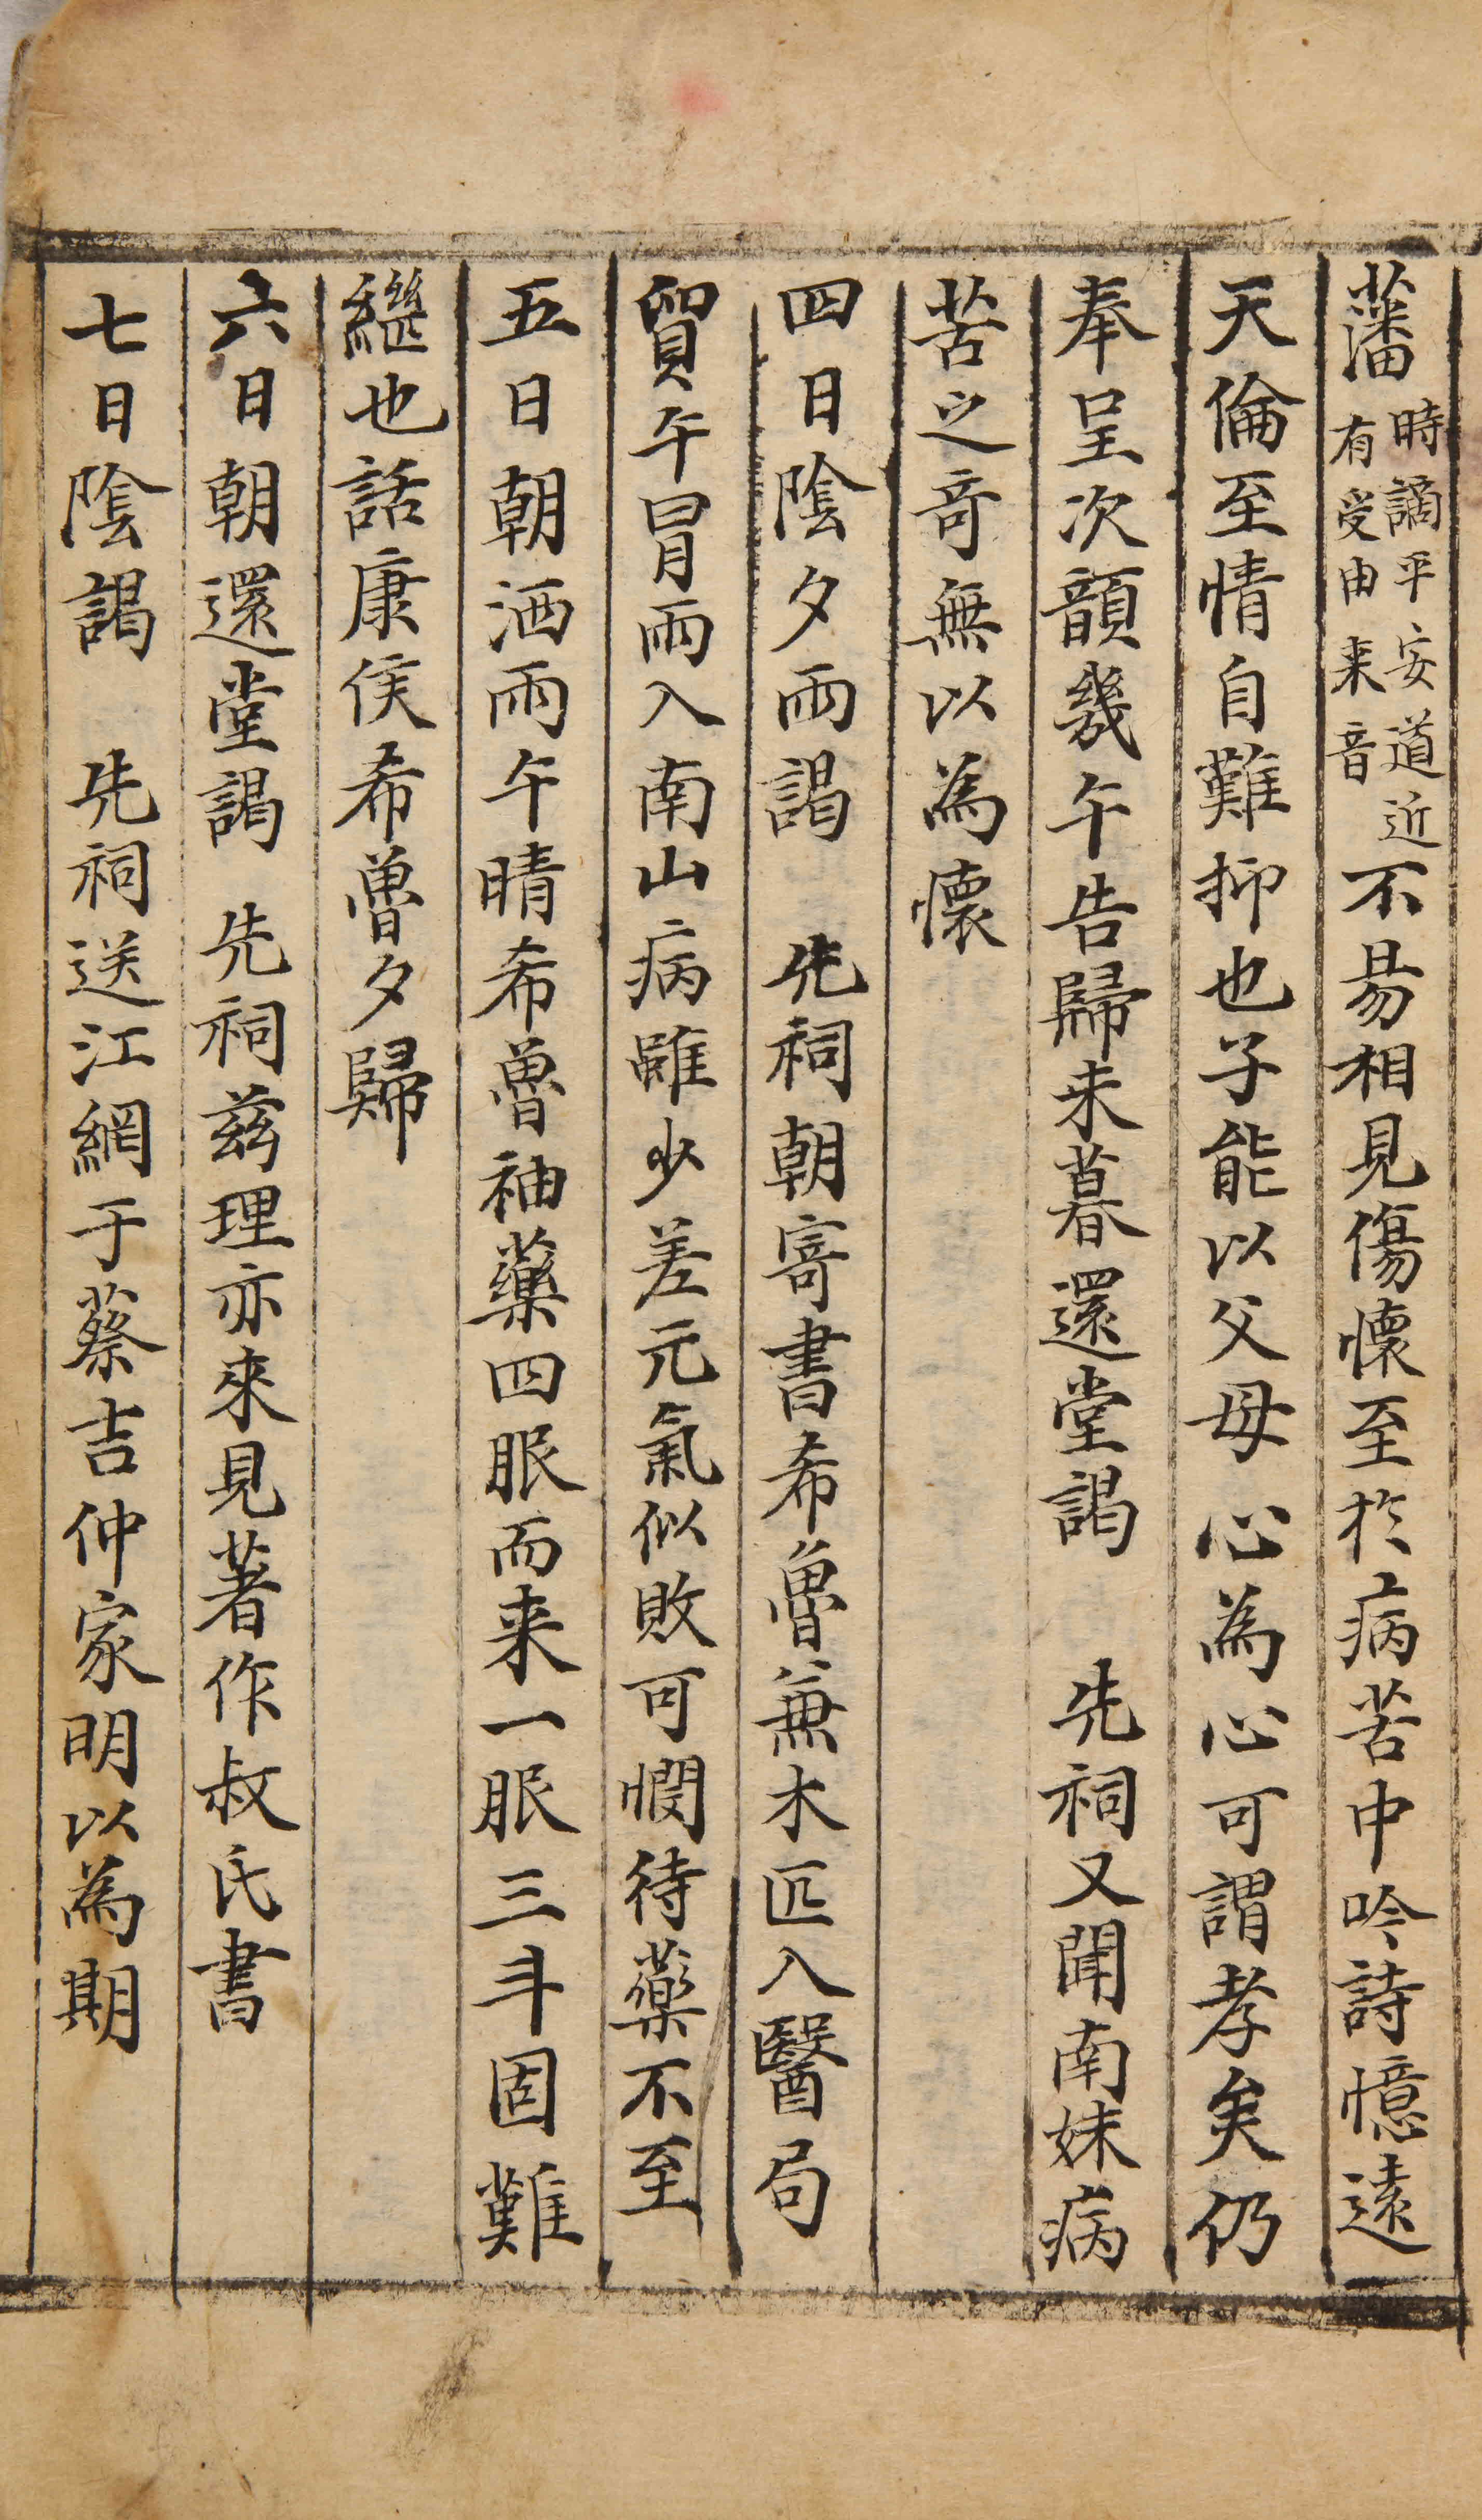 藩時謫平安道近有受由来音不易相見傷懷至於病苦中吟詩憶遠
天倫至情自難抑也子能以父母心為心可謂孝矣仍
奉呈次韻幾午告歸未暮還堂謁　先祠又聞南妹病
苦之奇無以為懷
四日陰夕雨謁　先祠朝寄書希魯蕪木匹入醫局
貿午冒雨入南山病雖少差元氣似敗可憫待藥不至
五日朝洒雨午晴希魯袖藥四眼而来一眼三斗固難
繼也話康侯希魯夕歸
六日朝還堂謁　先祠兹理亦來見著作叔氏書
七日陰謁　先祠送江網于蔡吉仲家明以為期